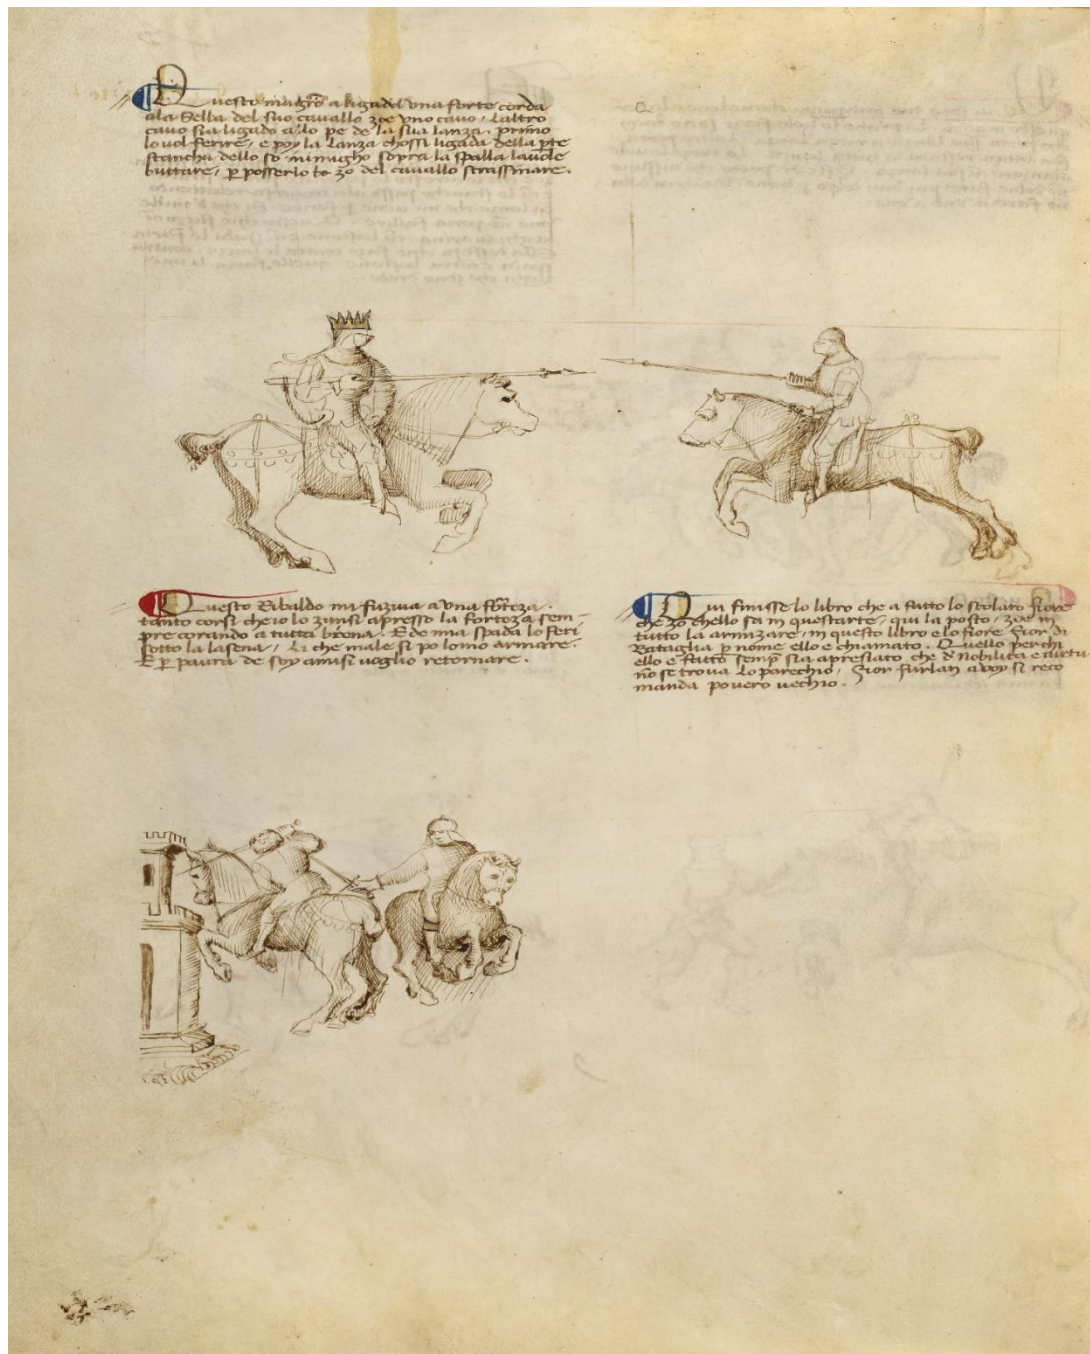 Questo magistro a ligada una forte corda
ala sella del suo cavallo zoe uno cavo, laltro
cavo sia ligado alo pe de la sua lanza. primo
lo vol ferire, e poy la lanza chossi ligada della pte
stancha dello so inimigho sopra la spalla la vole
buttare, p posserlo to zo del cavallo strassinare.
Questo Ribaldo mi fuziva a una forteza.
tanto corsi che io lo zunsi apresso la forteza sem
pre corando a tutta brena. E de mia spada lo feri
sotto la lasena, li che male si po lomo armare.
E p paura de soy amisi voglio retornare.
Qui finisse lo libro che a fatto lo scolaro fiore
che zo chello sa in questarte, qui la posto, zoe in
tutto la armizare, in questo libro e lo fiore Sior di
Battaglia p nome ello e chiamato. Quello perchi
ello e fatto semp sia apresiato che d nobilita e virtu
no se trova lo parechio, Sior furlan a voy si reco
manda povero vechio.